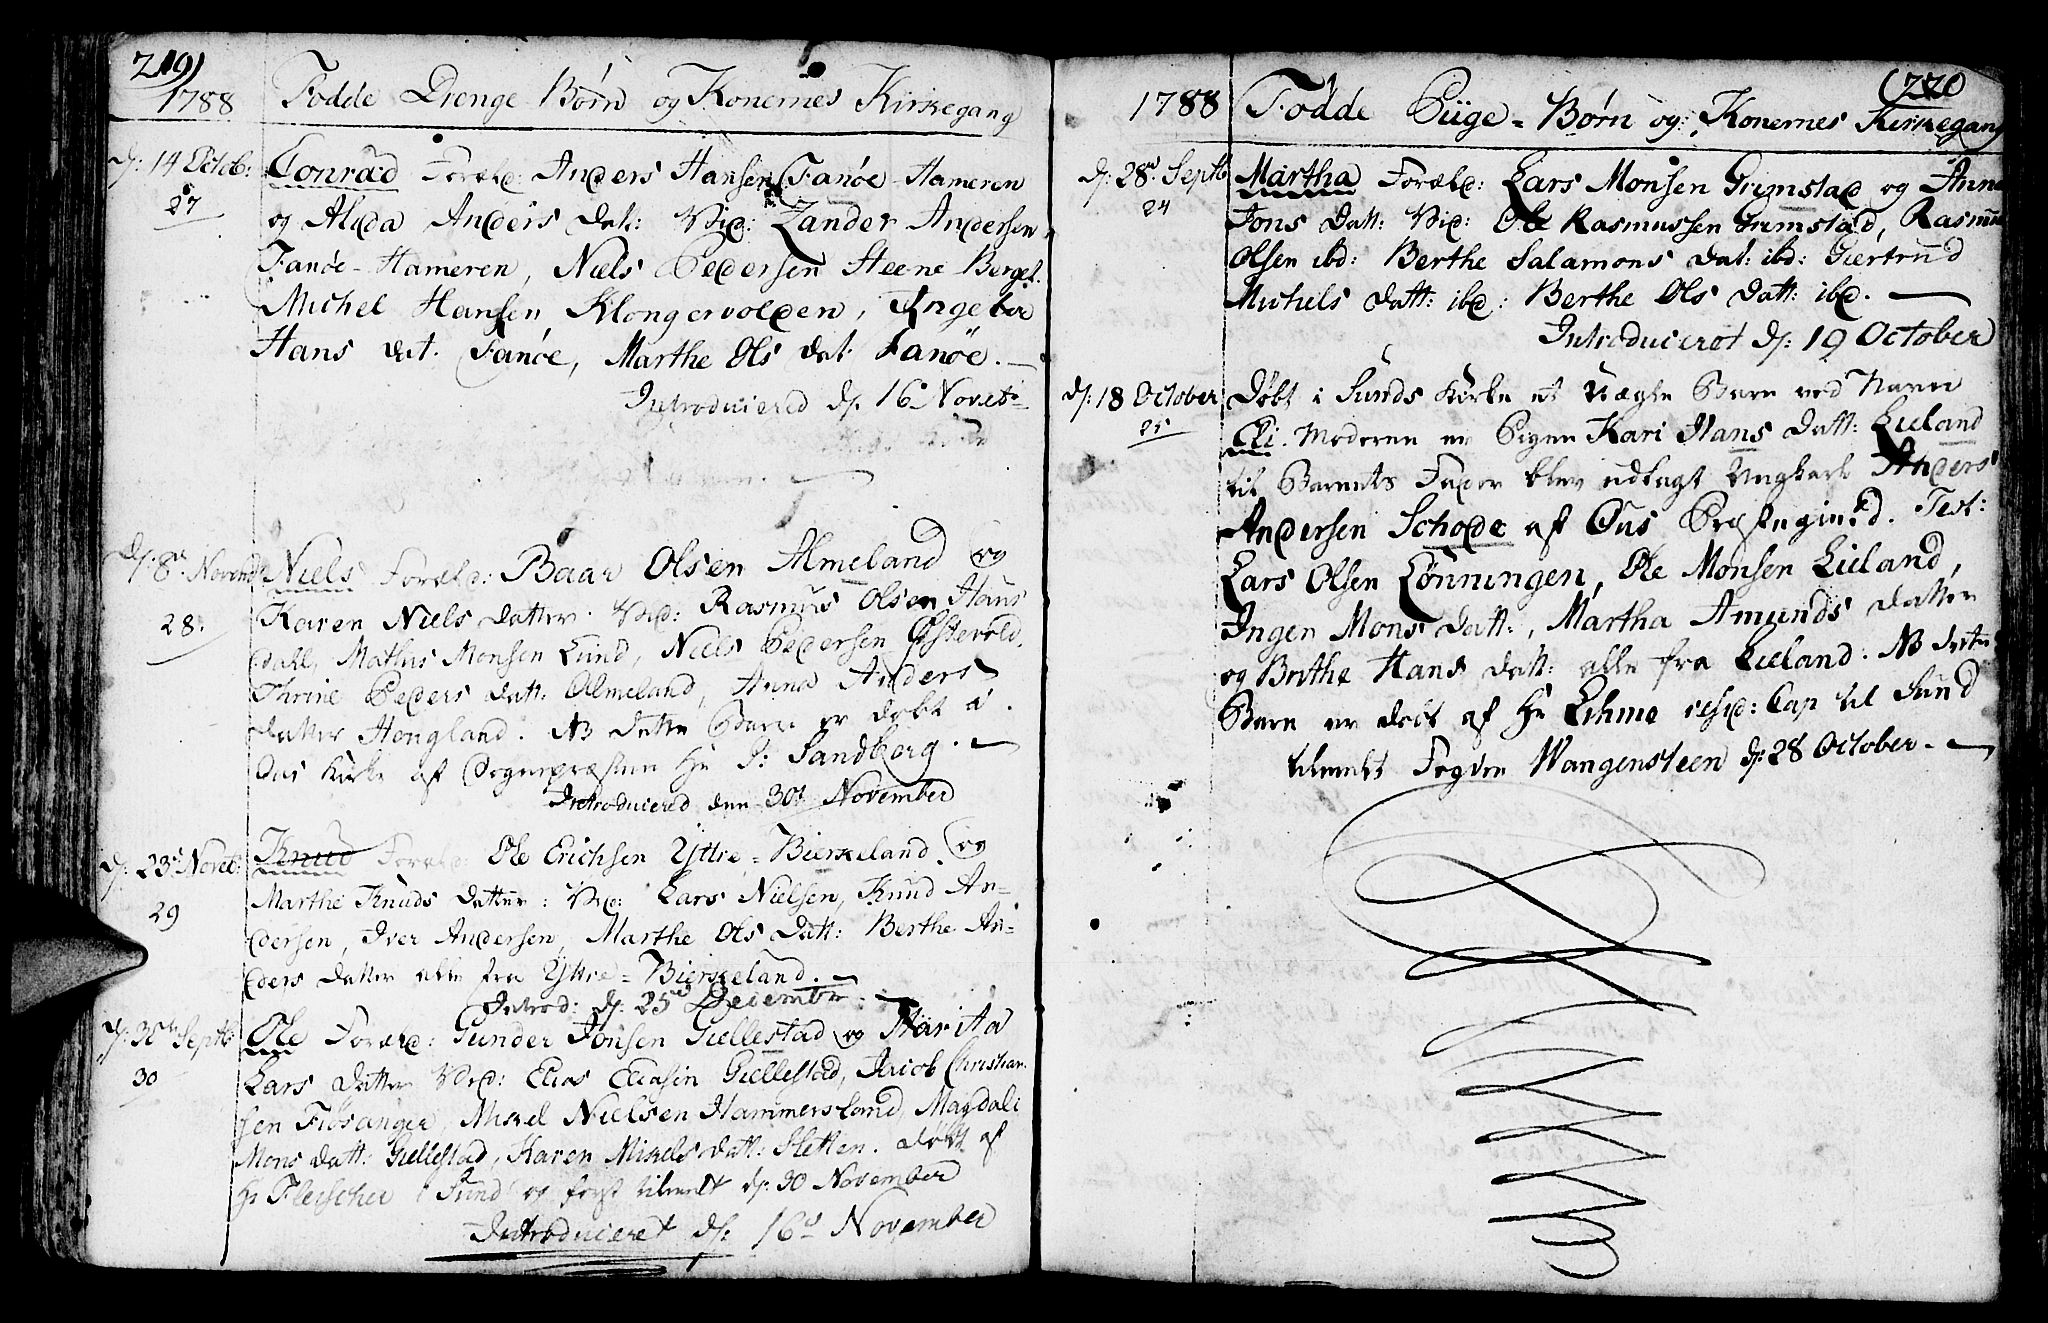 219)
1788 Fødde Drenge Børn og Konernes Kirkegang
d: 14 Octob: Conrad Foræld: Anders Hansen Fanøe-Hameren
27
og Alida Anders dat: Vid: Zander Andersen
Fanøe-Hameren, Niels Pedersen Steene Berget.
Michel Hansen Klongervolden, Ingebor
Hans dat. Fanøe, Marthe Ols dat. Fanøe.
Introducered d: 16 Novebr
d: 8de Novemb Niels Foræld: Baar Olsen Almeland og
28.
Karen Niels datter. Vid: Rasmus Olsen Haus
dall, Mathis Monsen Lund, Niels Pedersen Østevold,
Thrine Peders datt: Almeland, Anna Anders
datter Hongland. NB dette Barn er døbt i
Ous Kirke af Sognepræsten Hr J: Sandberg.
Introducered den 30t November
d: 23d Noveb: Knud Foræld: Ole Erichsen Yttre-Bierkeland og
29
Marthe Knuds datter: Vid: Lars Nielsen, Knud An=
dersen, Iver Andersen, Marthe Ols datt: Berthe An=
ders datter alle fra Yttre-Bierkeland.
Introd: d: 25d Decembr
d: 30te Septb: Ole Foræld: Gunder Jonsen Giellestad og Marita
30
Lars datter Vid: Elias Eliasen Giellestad, Jacob Christian
sen Fiøsanger, Mikel Nielsen Hammersland, Magdali
Mons datt: Giellestad, Karen Mikels datt: Sletten. døbt af
Hr Fleischer i Sund og først tilmelt d: 30 November
Introduceret d: 16d November
(220
1788 Fødde Piige-Børn og Konernes Kirkegang
d: 28de Septb Martha Foræld: Lars Monsen Grimstad og Anna
24
Jons datt: Vid: Ole Rasmussen Grimstad, Rasmus
Olsen ibd: Berthe Salamons dat: ibd: Giertrud
Michels datt: ibd: Berthe Ols datt: ibd.
Introduceret d: 19 October
d: 18 October Døbt i Sunds Kirke et Uægte Barn ved Navn
25
Eli. Moderen er Pigen Kari Hans datt: Lieland
til Barnets Fader blev udlagt Ungkarl Anders
Andersen Schode af Ous Præstegield. Test:
Lars Olsen Lønningen, Ole Monsen Lieland,
Ingen Mons datt:, Martha Amunds datter
og Brithe Hans datt: alle fra Lieland. NB dette
Barn er døbt af Hr Lihme resid: Cap til Sund
tilmeldt Fogden Wangensteen d: 28 October.